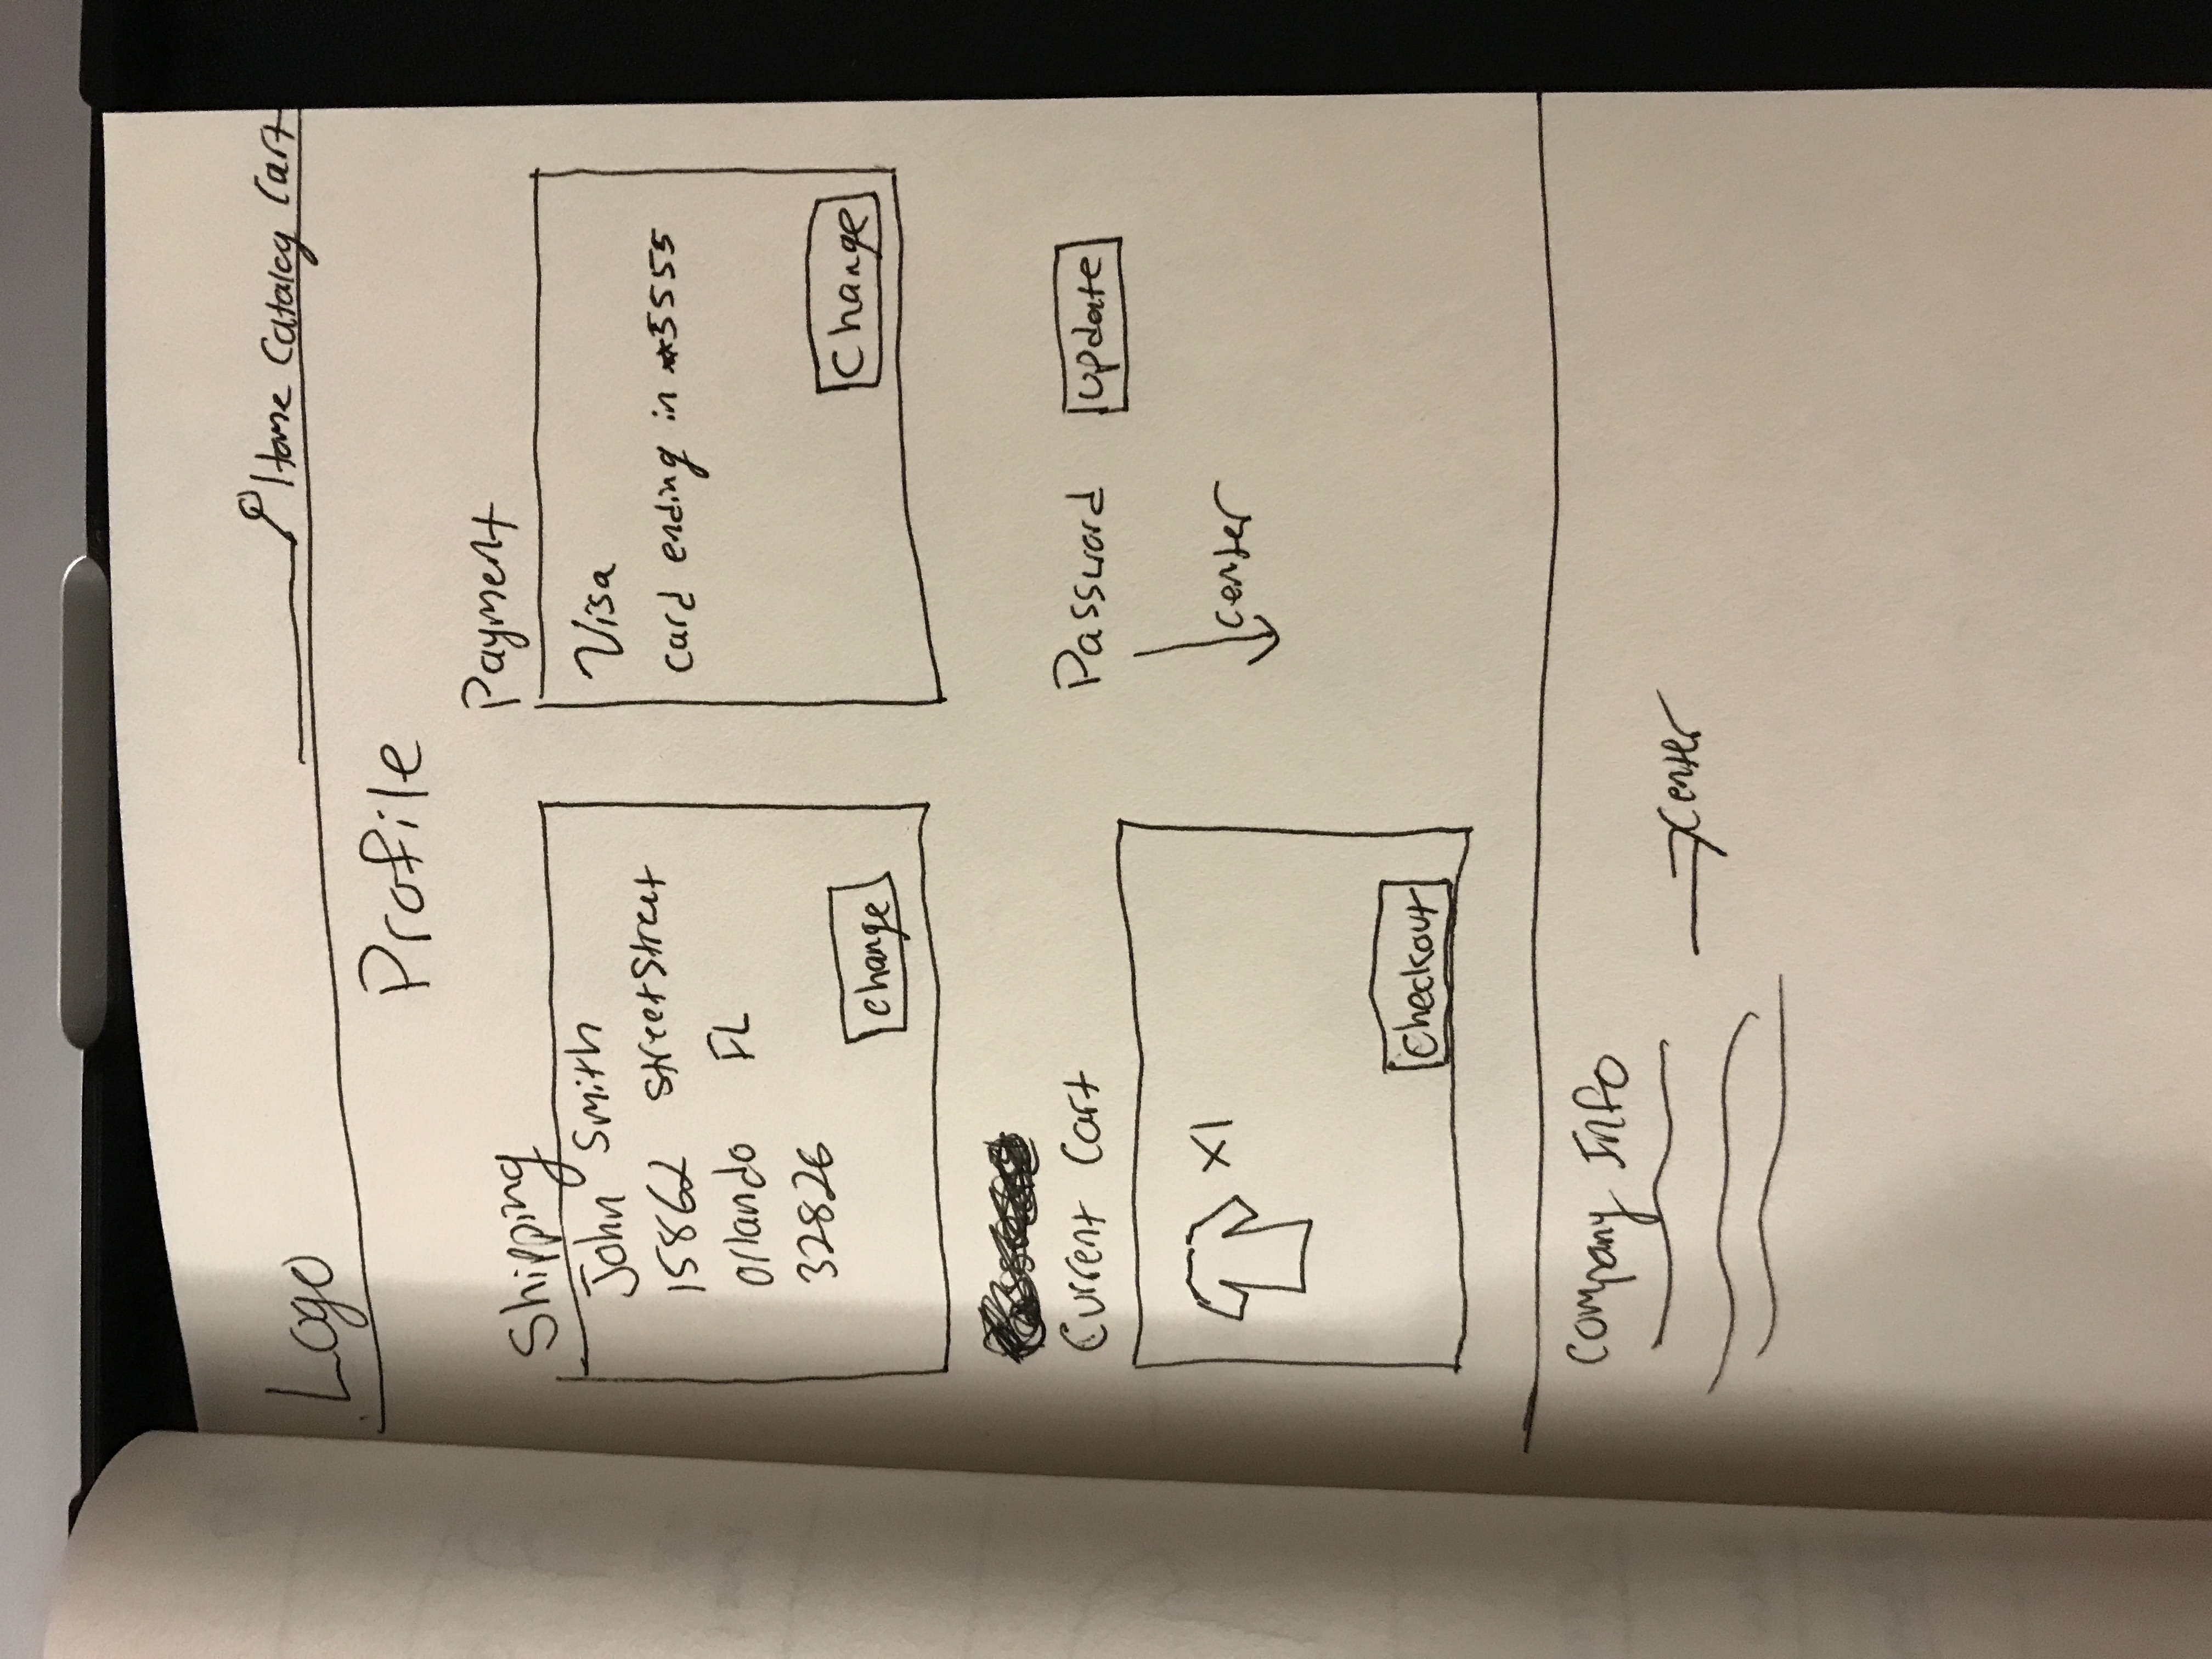 Logo
Home Catalog Cart
Profile
Shipping
John Smith
15862 StreetStreet
Orlando FL
32826
change
Payment
Visa
card ending in **5555
Change
Current Cart
x1
Checkout
Password update
center
Company Info
center